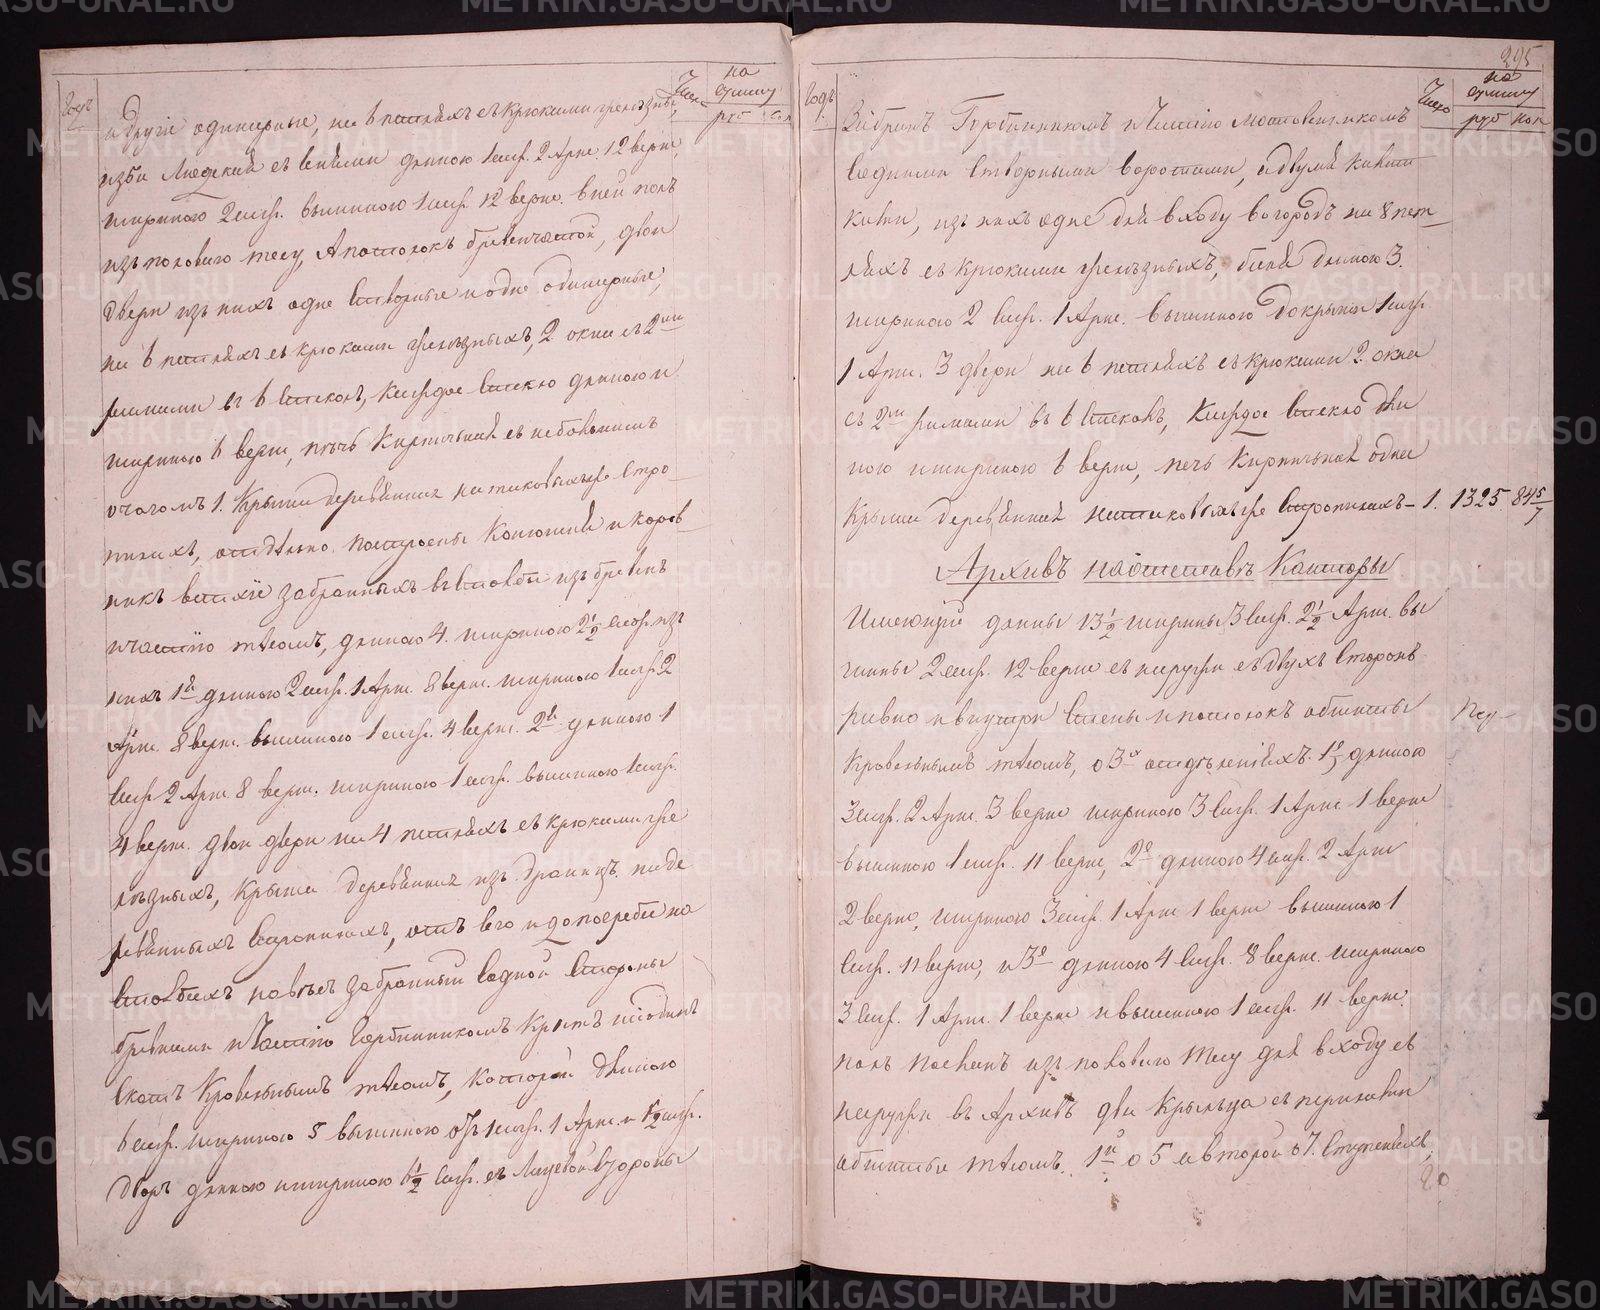 Годъ
Число
на сумму
руб коп
а другіе одинарные, на 6 петляхъ съ крюками железны,
изба людской съ сѣнями длиною 1 саж. 2 Арш. 12 верш,
шириною 2 саж. вышиною 1 саж. 12 верш. в ней полъ
изъ половаго тесу, а потолокъ бревенчатой, двои
двери изъ нихъ одне створные и одне одинарные,
на 6 петляхъ съ крюками железныхъ, 2 окна съ 2мя
рамами въ 6 стеколъ, каждое стекло длиною и
шириною 6 верш, печь Кирпичная съ небольшимъ
очагомъ 1. Крыша деревянная на таковыхъ же стро
пилахъ, отдѣльно построены Конюшня и коров
никъ ветхіе забранныхъ въ столбы изъ бревенъ
и частію тѣсомъ, длиною 4. шириною 2½ саж. изъ
нихъ 1я длиною 2 саж. 1 Арш. 8 верш. шириною 1 саж. 2
Арш. 8 верш. вышиною 1 саж. 4 верш. 2я длиною 1
саж 2 Арш. 8 верш. шириною 1 саж. вышиною 1 саж.
4 верш. двои двери на 4 петляхъ съ крюками же
лѣзныхъ, Крыша деревянная изъ драницъ на де
ревянныхъ стропилахъ, отъ сего и до погреба на
столбахъ навѣсъ забранный содной стороны
бревнами и частію Горбинникомъ крытъ на одинъ
скатъ Кровельнымъ тѣсомъ, который длиною
6 саж. шириною 5 вышиною отъ 1 саж. 1 Арш. и 1½ саж.
Дворъ длиною и шириною 6½ саж. съ лицевой стороны
295
Годъ
Число
на сумму
руб коп
Забранъ Горбинникомъ и частію
содними створными воротами, и двумя калит
ками, изъ нихъ одне для входу в огородъ на 8 пет
ляхъ съ крюками железныхъ, баня длиною 3.
шириною 2 саж. 1 Арш. вышиною до крыши 1 саж
1 Арш. 3 двери на 6 петляхъ съ крюками 2 окна
съ 2мя рамами въ 6 стеколъ, каждое стекло дли
ною и шириною 6 верш, печь Кирпичная одна
Крыша деревянная на таковыхъ же стропилахъ – 1. 1325 84 5/7
Архивъ Конторы
Имеющій длины 13½ ширины 3 саж. 2½ Арш. вы
шины 2 саж. 12 верш съ наружи съ двухъ сторонъ
равно и внутри стены и потолокъ обшиты
Кровельнымъ тѣсомъ, о 3х отдѣленіяхъ. 1е длиною
3 саж. 2 Арш. 3 верш шириною 3 саж. 1 Арш 1 верш
вышиною 1 саж. 11 верш, 2е длиною 4 саж. 2 Арш
2 верш, шириною 3 саж. 1 Арш 1 верш вышиною 1
саж. 11 верш, и 3е длиною 4 саж. 8 верш. шириною
3 саж. 1 Арш. 1 верш и вышиною 1 саж. 11 верш.
полъ изъ половаго тесу для входу съ
наружи въ Архивъ два крыльца съ перилами
обшиты тѣсомъ. 1й о 5 а второй о 7. ступеняхъ,
20
METRIKI.GASO-URAL.RU